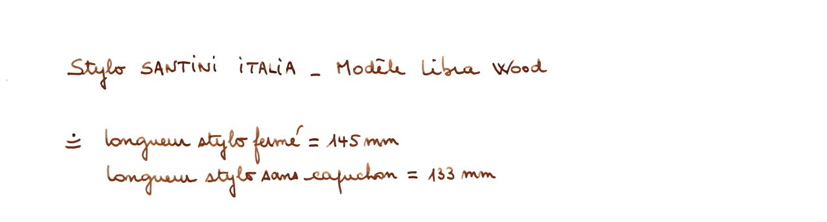 Stylo SANTINI ITALIA - Modèle Libra Wood
≐ longueur stylo fermé = 145 mm
longueur stylo sans capuchon = 133 mm